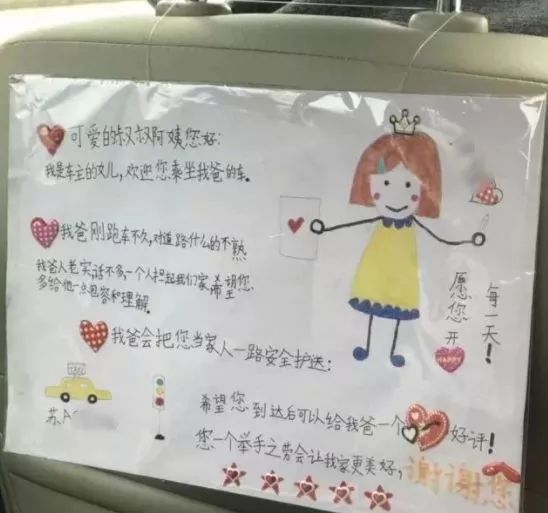 可爱的叔叔阿姨您好:
我是车主的女儿,欢迎您乘坐我爸的车。
我爸刚跑车不久,对道路什么的不熟
我爸人老实话不多,一个人担起我们家希望您
多给他一点包容和理解.
我爸会把您当家人一路安全护送:
希望您到达后可以给我爸一个好评!
您一个举手之劳会让我家更美好,谢谢您
愿您开
HAPPY
每一天!
TAXI
苏A